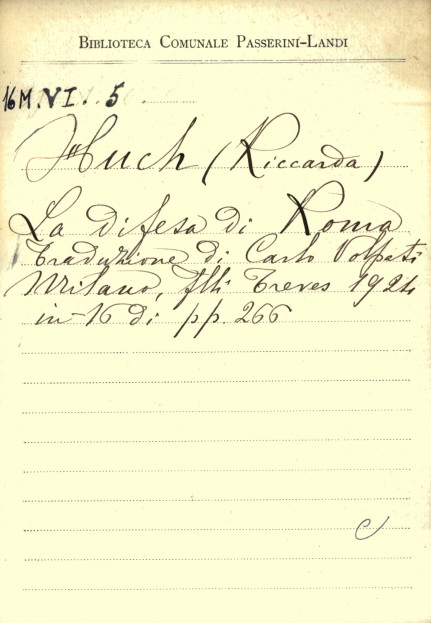 BIBLIOTECA COMUNALE PASSERINI-LANDI
16 M. VI. 5
Huch (Riccarda)
La difesa di Roma
Traduzione di Carlo Volpati
Milano, flli Treves 1924
in-16 di pp. 266